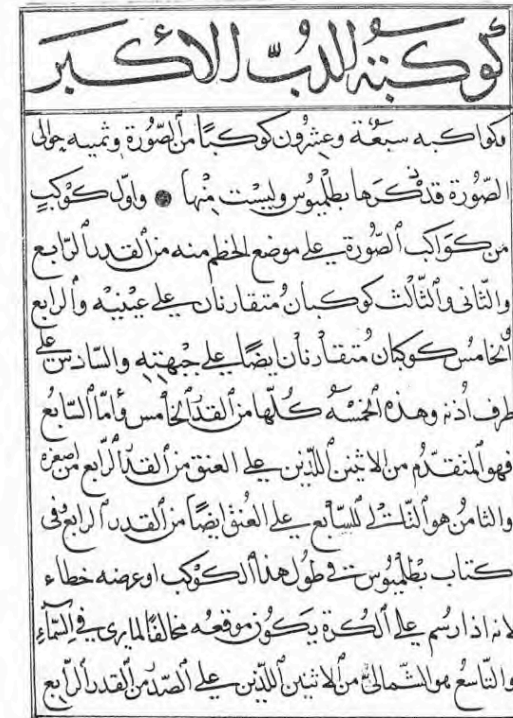 كوكبة الدبّ الأكبر
فكواكبه سبعة وعشرون كوكبًا من الصّورة وثمنيه حوالى
الصّورة قد ذكرها بطلميوس وليست منها ● واوّل كوكبٍ
من كواكب الصّورة على موضع الخطم منه من القدر الرّابع
والثّانى والثّالث كوكبان مُتقارنان على عينيه والرابع
الخامس كوكبان مُتقارنان ايضًا على جبهته والسّادس على
طرف اُذنه وهذه الخمسه كلّها من القدر الخامس فامّا السّابعُ
فهو المتقدّم من الاثنين اللّذين على العنق من القدر الرّابع من اصغره
والثامن هو التّالى للسّابع على العُنق ايضًا من القدر الرابع وفى
كتاب بطلميوس فى طول هذا الكوكب او عرضه خطاء
لانه اذا رُسم على الكرة يكون موقعه مخالفًا لما يرى فى السّمآءِ
والتّاسع هو الشّمالىّ من الاثنين اللّذين على الصّدر من القدر الرّابع